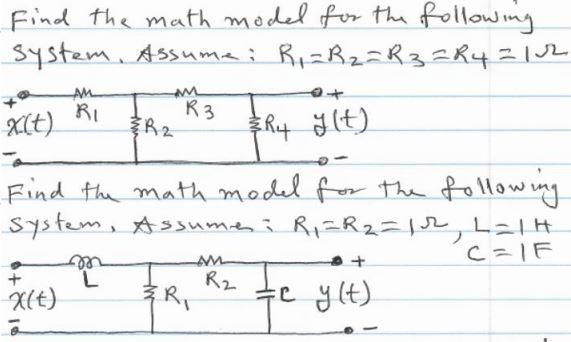 Find the math model for the following
System. Assume: R1=R2=R3=R4=1Ω
+ R1 R3 +
x(t) R2 R4 y(t)
- -
Find the math model for the following
System. Assume: R1=R2=1Ω, L=1H
C=1F
+ L R2 +
x(t) R1 C y(t)
- -